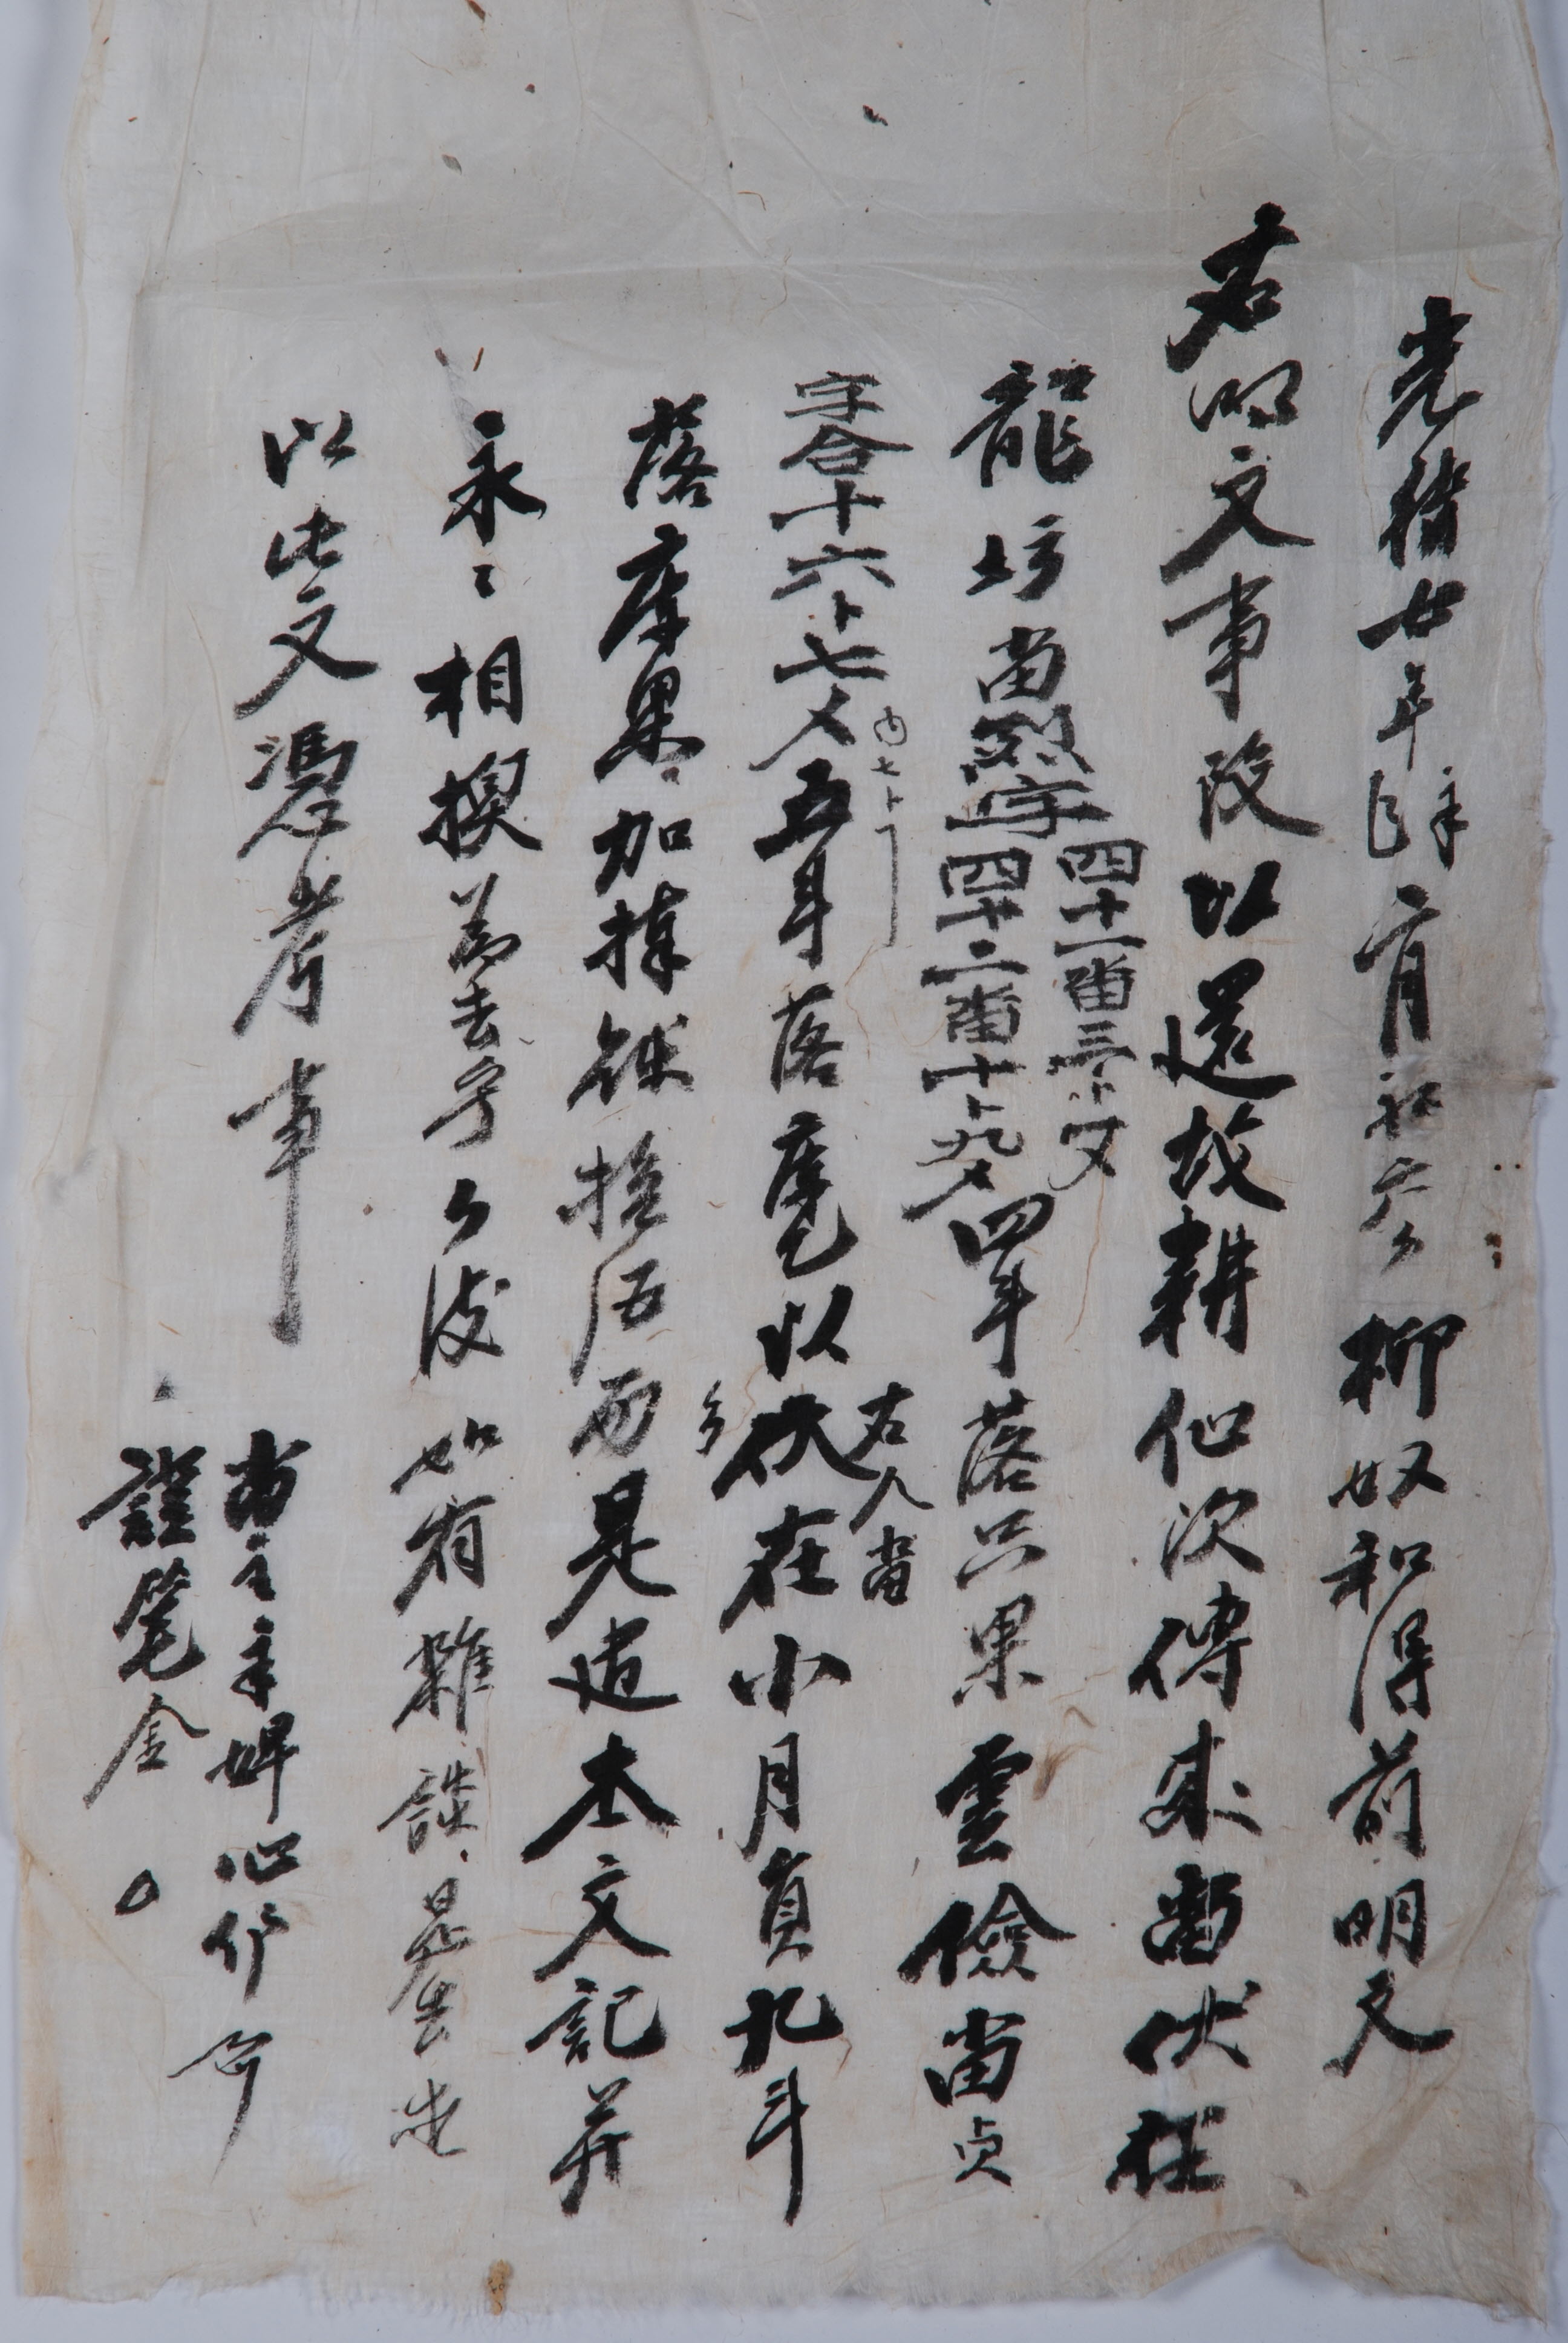 光緖廿年 二月初六日 柳奴和得前明文
右明文事段以還故耕仁次傳來畓伏在
龍坊畓烈字四十一番三卜 四十二番十卜九 四斗落只果雲儉畓貞
字合十六卜七 五斗落庫乙以
內七卜
右人畓
伏在小月員九斗
落庫果加捧錢拾伍兩是遣本文記并
永〻相換爲去乎日後如有雜談是去
以此文憑考事
畓主 婢心
證筆金